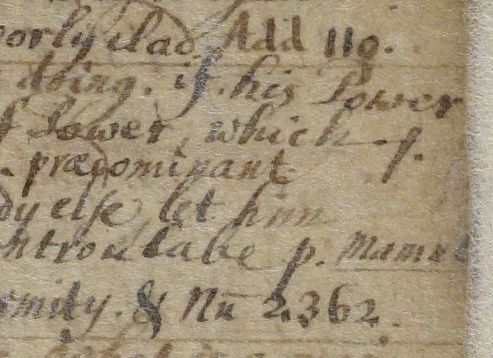 oorly clad. Add 119.
doing. if his Power
f Power, which f.
prædominant
dy else, let him
ntroulable p. Mamal
rmity. & Nu 2362.